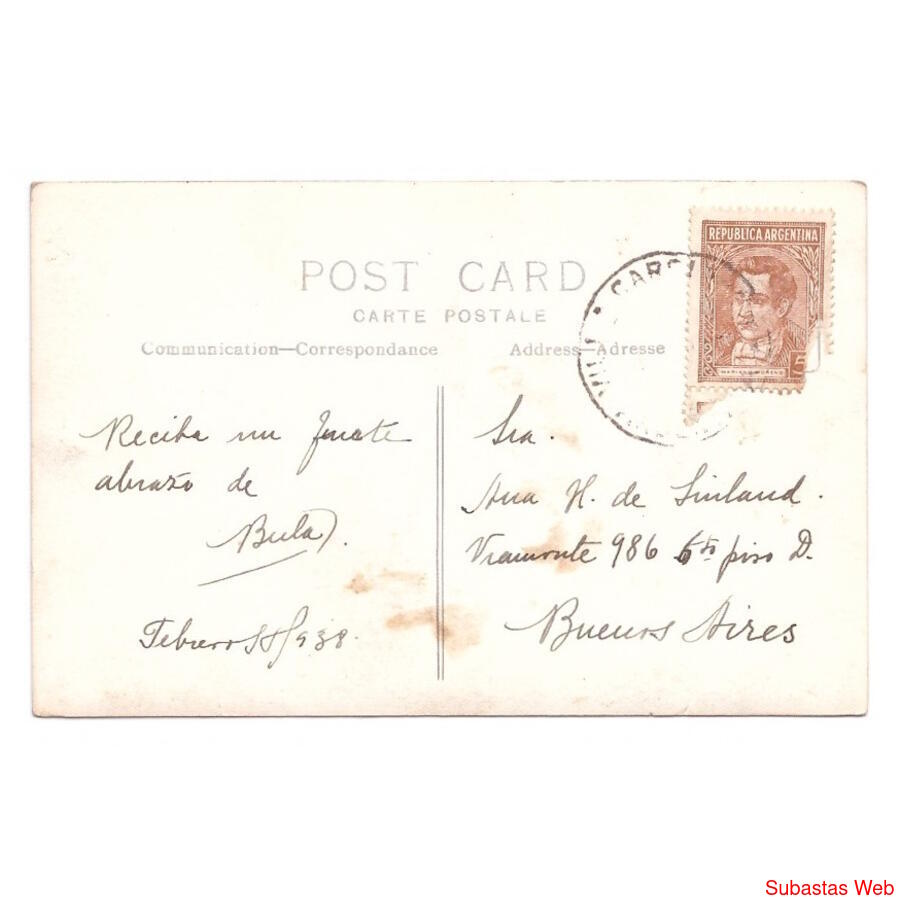 POST CARD
CARTE POSTALE
Communication—Correspondance
Address—Adresse
REPUBLICA ARGENTINA
MARIANO MORENO
5
Reciba un fuerte
abrazo de
Bula
Febrero 938
Sra.
Ana H. de Sinland.
Viamonte 986 6to piso D.
Buenos Aires
Subastas Web